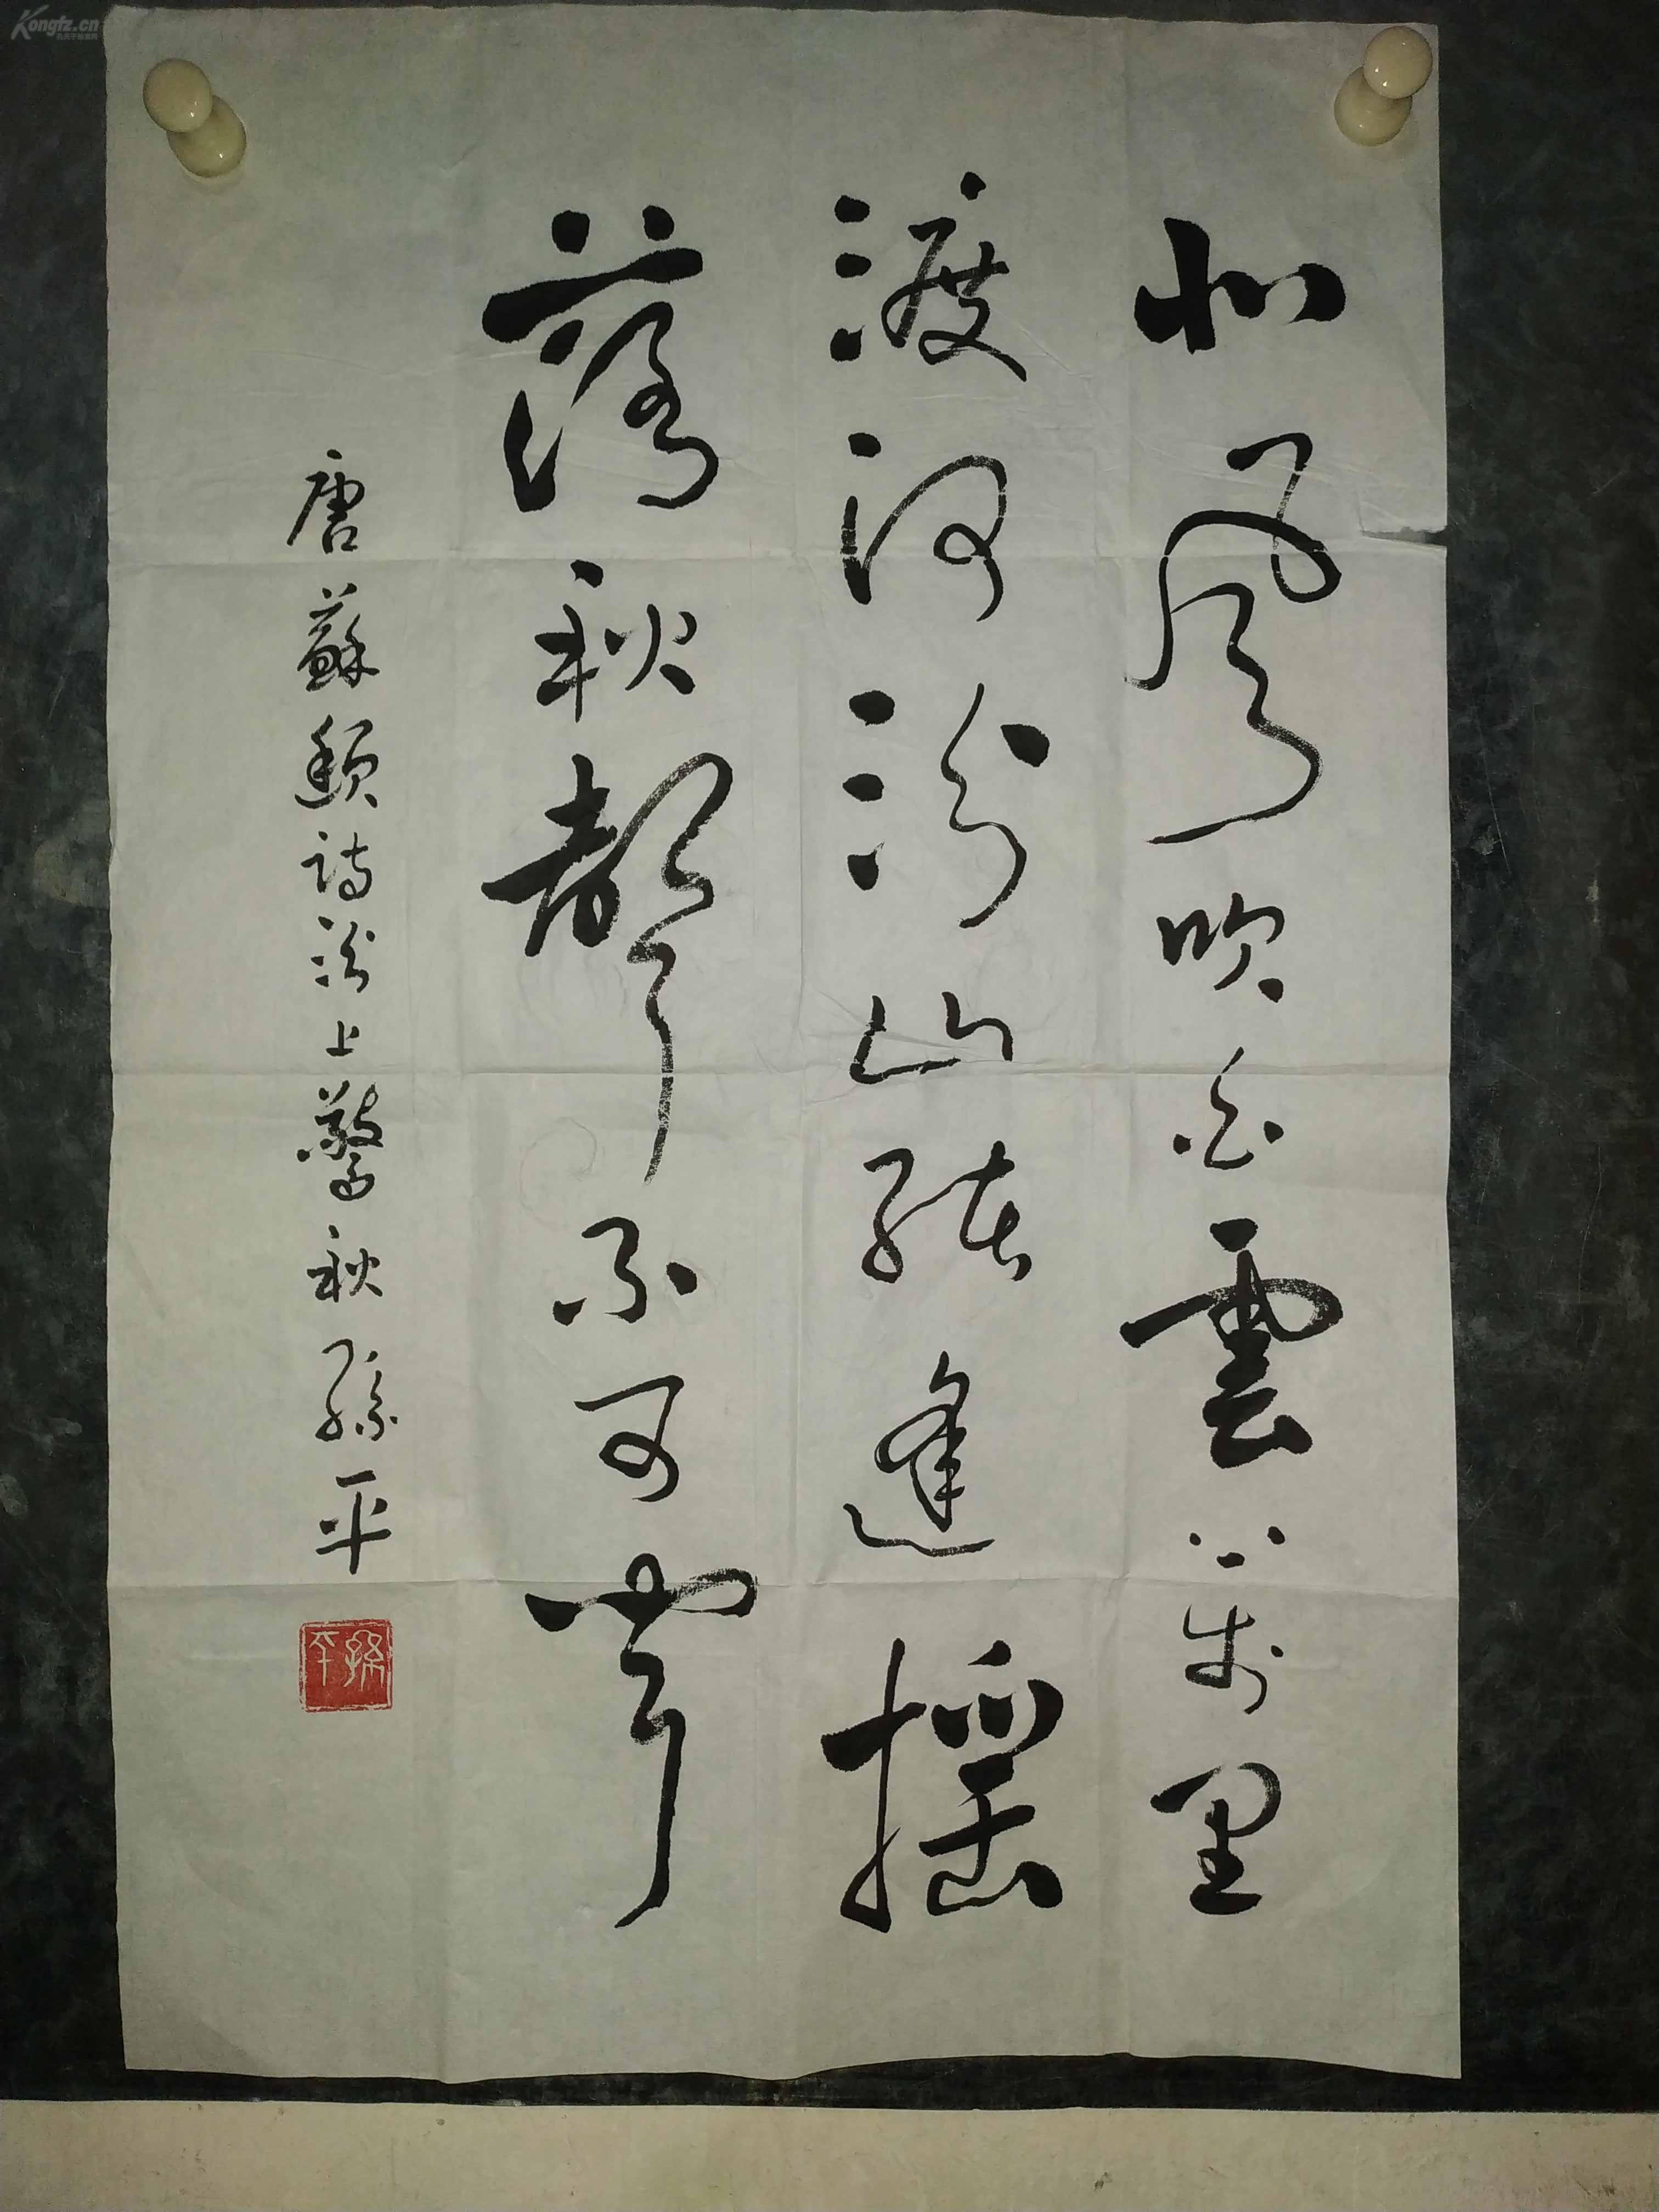 北風吹白雲萬里
渡河汾心緒逢搖
落秋聲不可聞
唐蘇頲詩汾上驚秋孫平
孫平
Kongfz.cn